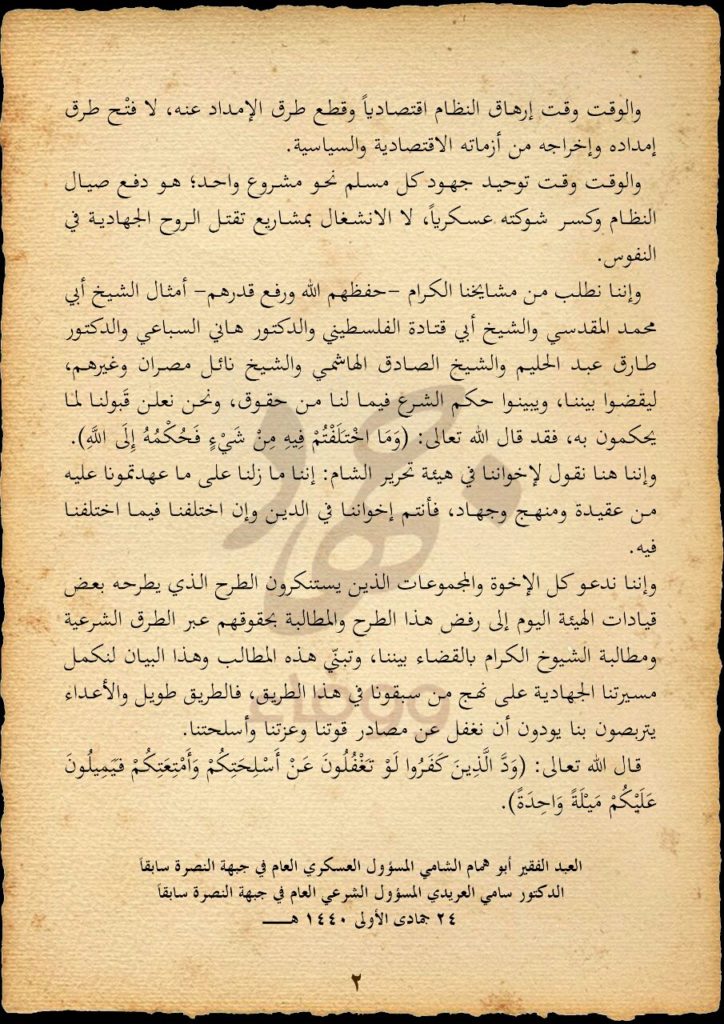 والوقت وقت إرهاق النظام اقتصادياً وقطع طرق الإمداد عنه، لا فتْح طرق
إمداده وإخراجه من أزماته الاقتصادية والسياسية.
والوقت وقت توحيد جهود كل مسلم نحو مشروع واحد؛ هو دفع صيال
النظام وكسر شوكته عسكرياً، لا الانشغال بمشاريع تقتل الروح الجهادية في
النفوس.
وإننا نطلب من مشايخنا الكرام -حفظهم الله ورفع قدرهم- أمثال الشيخ أبي
محمد المقدسي والشيخ أبي قتادة الفلسطيني والدكتور هاني السباعي والدكتور
طارق عبد الحليم والشيخ الصادق الهاشمي والشيخ نائل مصران وغيرهم،
ليقضوا بيننا، ويبينوا حكم الشرع فيما لنا من حقوق، ونحن نعلن قَبولنا لما
يحكمون به، فقد قال الله تعالى: (وَمَا اخْتَلَفْتُمْ فِيهِ مِنْ شَيْءٍ فَحُكْمُهُ إِلَى اللَّهِ).
وإننا هنا نقول لإخواننا في هيئة تحرير الشام: إننا ما زلنا على ما عهدتمونا عليه
من عقيدة ومنهج وجهاد، فأنتم إخواننا في الدين وإن اختلفنا فيما اختلفنا
فيه.
وإننا ندعو كل الإخوة والمجموعات الذين يستنكرون الطرح الذي يطرحه بعض
قيادات الهيئة اليوم إلى رفض هذا الطرح والمطالبة بحقوقهم عبر الطرق الشرعية
ومطالبة الشيوخ الكرام بالقضاء بيننا، وتبنّي هذه المطالب وهذا البيان لنكمل
مسيرتنا الجهادية على نهج من سبقونا في هذا الطريق، فالطريق طويل والأعداء
يتربصون بنا يودون أن نغفل عن مصادر قوتنا وعزتنا وأسلحتنا.
قال الله تعالى: (وَدَّ الَّذِينَ كَفَرُوا لَوْ تَغْفُلُونَ عَنْ أَسْلِحَتِكُمْ وَأَمْتِعَتِكُمْ فَيَمِيلُونَ
عَلَيْكُمْ مَيْلَةً وَاحِدَةً).
العبد الفقير أبو همام الشامي المسؤول العسكري العام في جبهة النصرة سابقاً
الدكتور سامي العريدي المسؤول الشرعي العام في جبهة النصرة سابقاً
٢٤ جمادى الأولى ١٤٤٠ هـ
٢